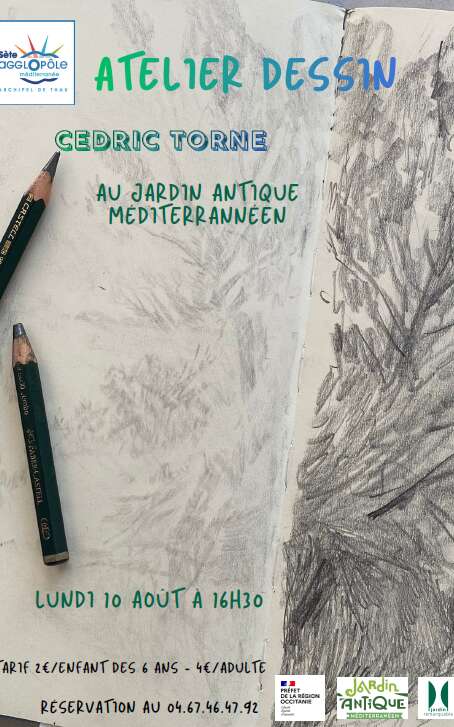 Sète
agglopôle
méditerranée
ARCHIPEL DE THAU
ATELIER DESSIN
CEDRIC TORNE
AU JARDIN ANTIQUE
MÉDITERRANNÉEN
CASTELL
FABER-CASTELL
LUNDI 10 AOÛT À 16H30
TARIF 2€/ENFANT DÈS 6 ANS - 4€/ADULTE
RÉSERVATION AU 04.67.46.47.92
PRÉFET
DE LA RÉGION
OCCITANIE
JARDIN
ANTIQUE
MÉDITERRANÉEN
jardin
remarquable